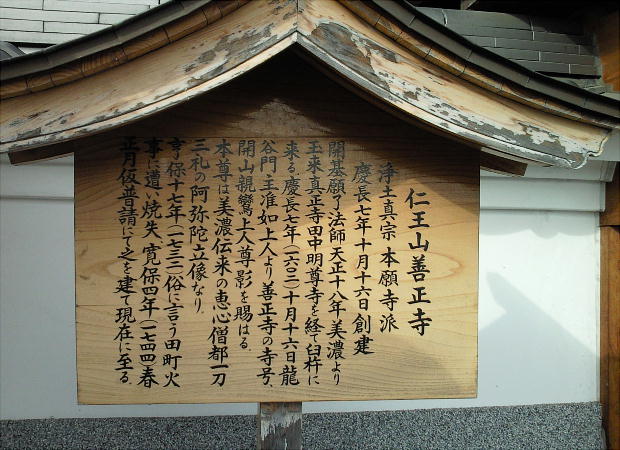 仁王山善正寺
浄土真宗 本願寺派
慶長七年十月十六日創建
開基願了法師天正十八年美濃より
玉来真正寺田中明尊寺を経て臼杵に
来る。慶長七年(一六〇二)十月十六日龍
谷門主准如上人より善正寺の寺号、
開山親鸞上人尊影を賜はる。
本尊は美濃伝来の恵心僧都一刀
三礼の阿弥陀立像なり。
享保十七年(一七三二)俗に言う田町火
事に遭い焼失、寛保四年(一七四四)春
正月仮普請にて之を建て現在に至る。